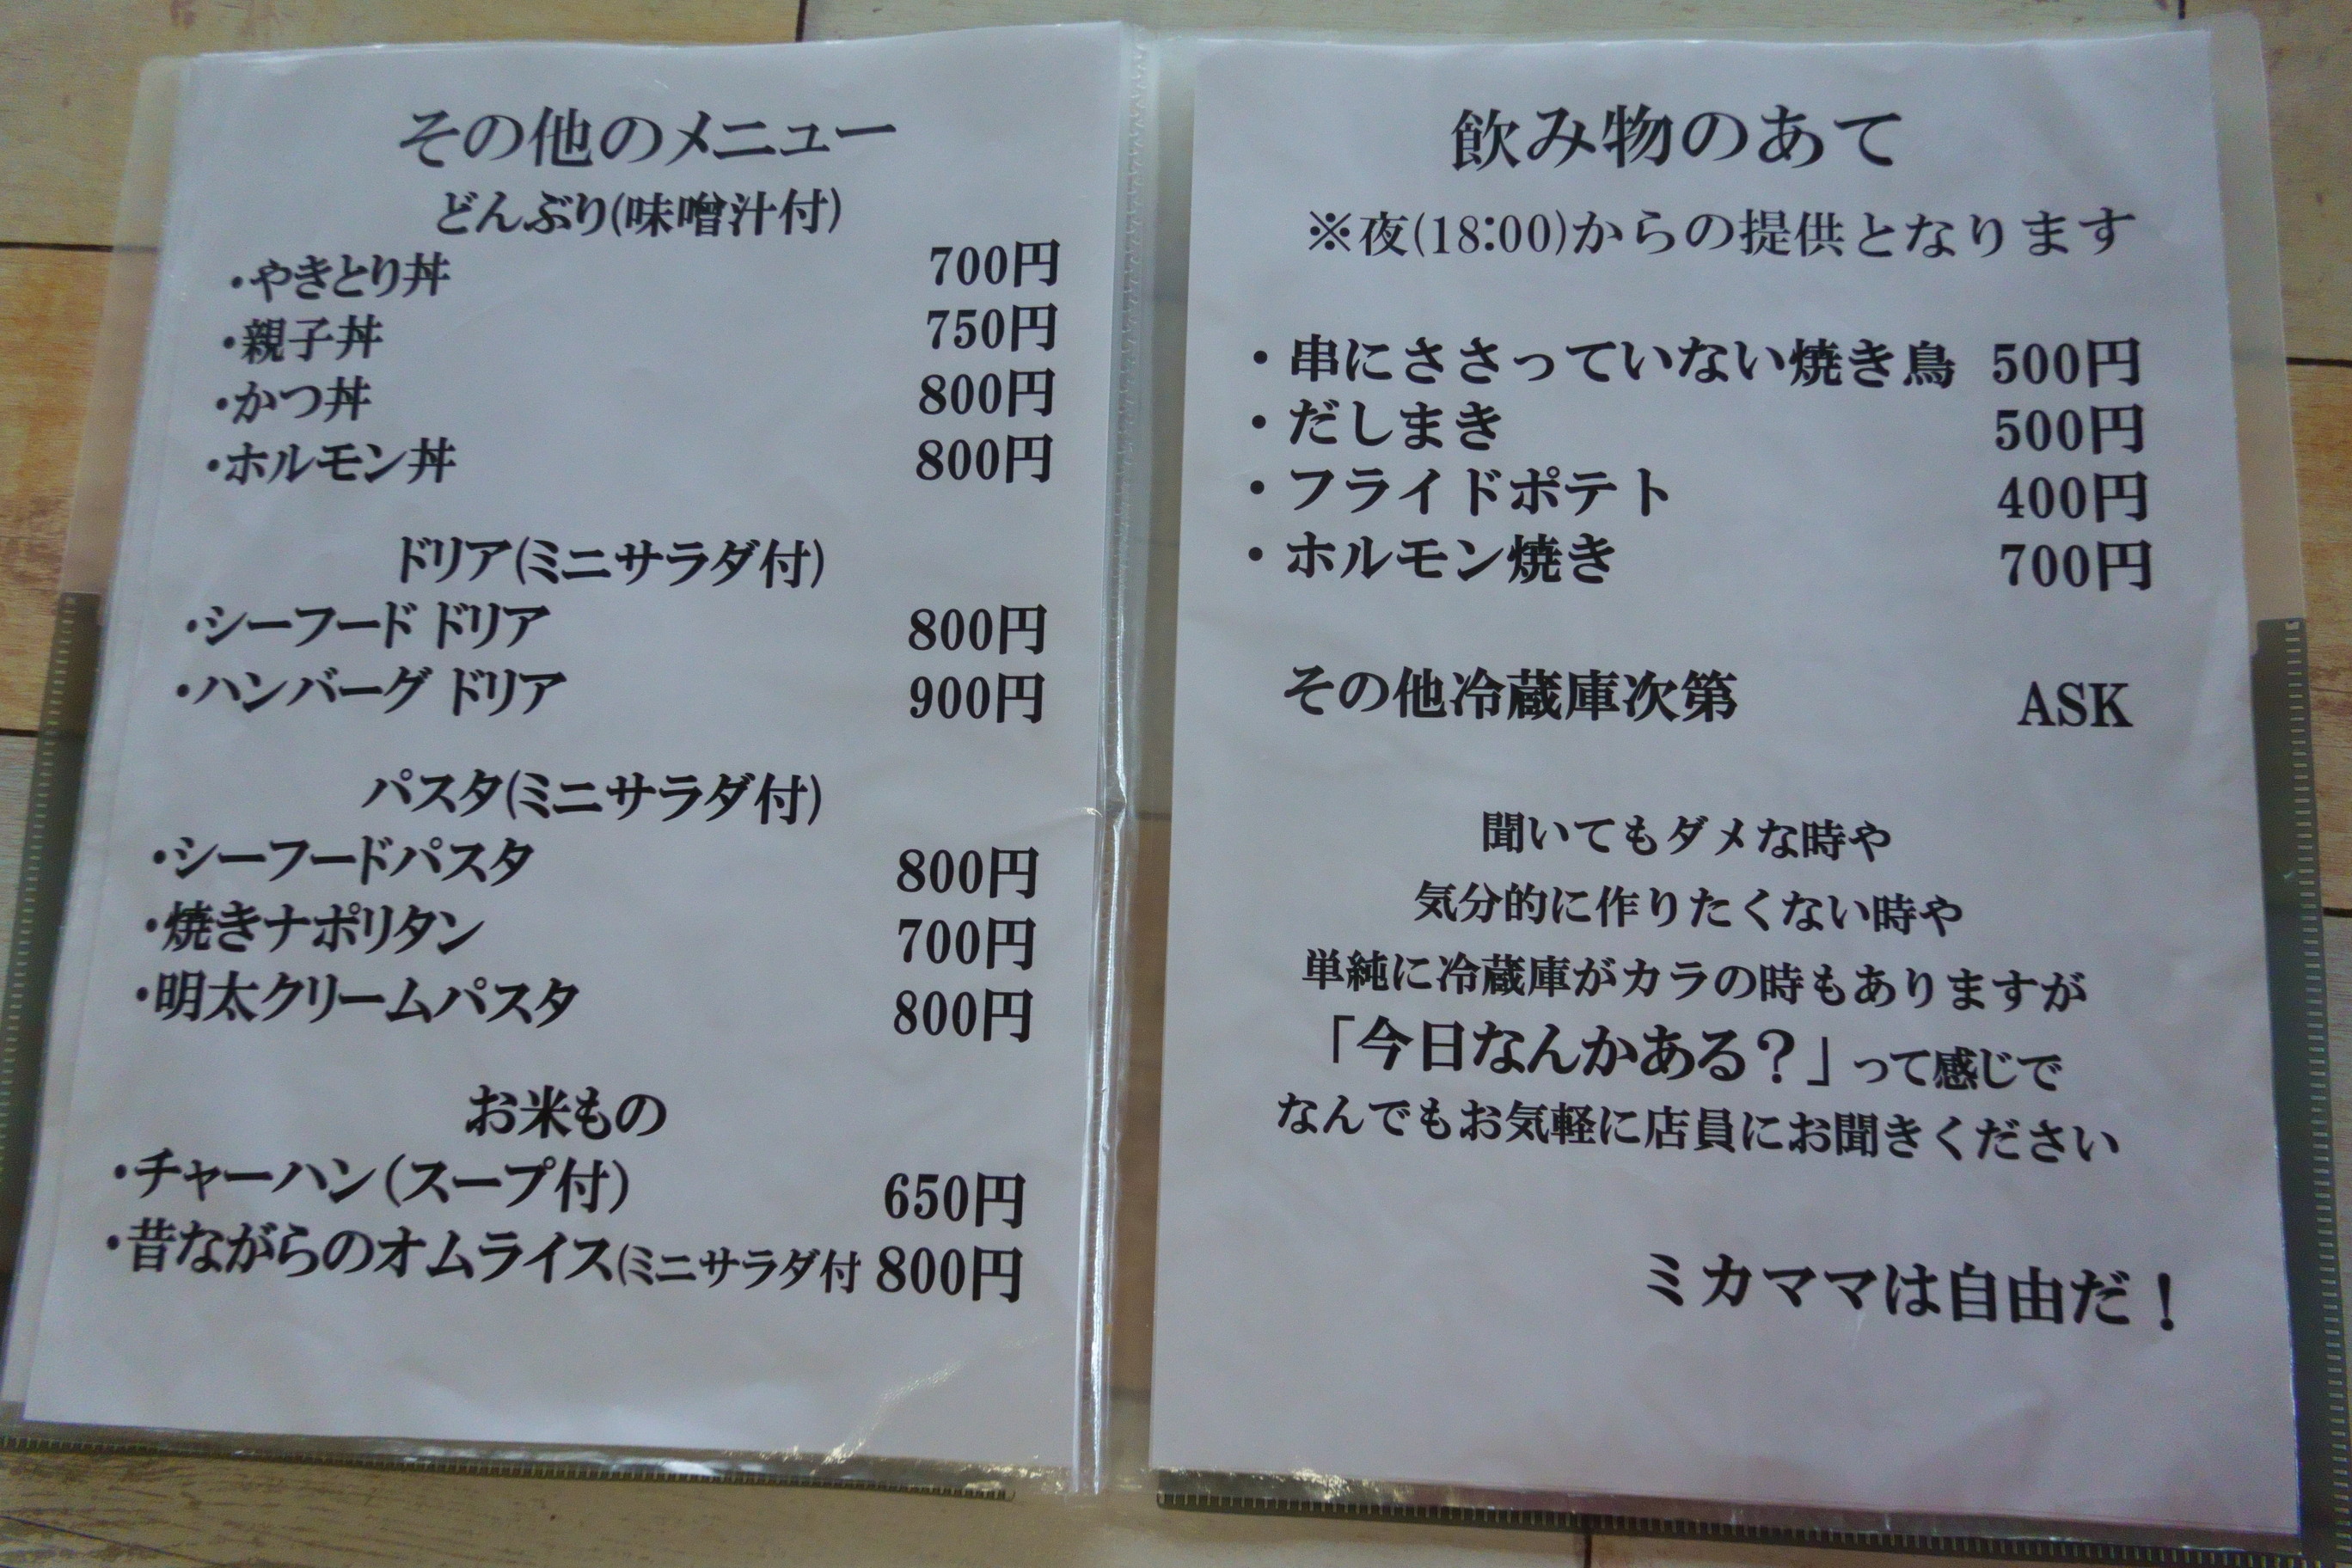 その他のメニュー
どんぶり(味噌汁付)
・やきとり丼 700円
・親子丼 750円
・かつ丼 800円
・ホルモン丼 800円
ドリア(ミニサラダ付)
・シーフード ドリア 800円
・ハンバーグ ドリア 900円
パスタ(ミニサラダ付)
・シーフードパスタ 800円
・焼きナポリタン 700円
・明太クリームパスタ 800円
お米もの
・チャーハン(スープ付) 650円
・昔ながらのオムライス(ミニサラダ付 800円
飲み物のあて
※夜(18:00)からの提供となります
・串にささっていない焼き鳥 500円
・だしまき 500円
・フライドポテト 400円
・ホルモン焼き 700円
その他冷蔵庫次第 ASK
聞いてもダメな時や
気分的に作りたくない時や
単純に冷蔵庫がカラの時もありますが
「今日なんかある?」って感じで
なんでもお気軽に店員にお聞きください
ミカママは自由だ!